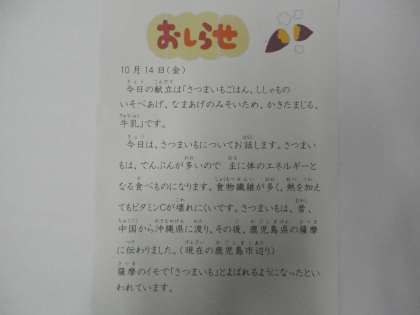 おしらせ
10月14日(金)
今日の献立は「さつまいもごはん、ししゃもの
いそべあげ、なまあげのみそいため、かきたまじる、
牛乳」です。
今日は、さつまいもについてお話します。さつまい
もは、でんぷんが多いので 主に体のエネルギーと
なる食べものになります。食物繊維が多く、熱を加え
てもビタミンCが壊れにくいです。さつまいもは、昔、
中国から沖縄県に渡り、その後、鹿児島県の薩摩
に伝わりました。(現在の鹿児島市辺り)
薩摩のイモで「さつまいも」とよばれるようになったとい
われています。